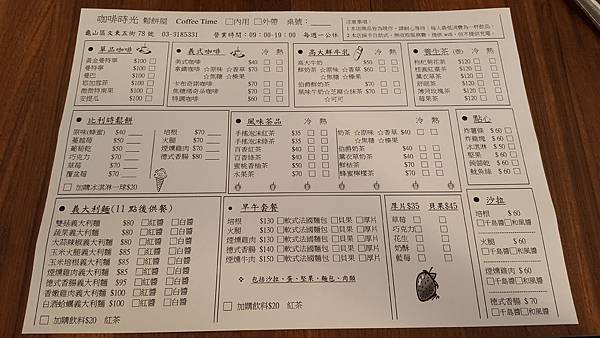 咖啡時光 鬆餅屋 Coffee Time □內用 □外帶 桌號：
龜山區文東五街78號 03-3185331 營業時間：09:00~19:00 每週一公休
注意事項：
● 單品咖啡 冷 熱
黃金曼特寧 $100 □ □
曼特寧 $100 □ □
曼巴 $100 □ □
耶加雪菲 $100 □ □
衣索比亞
安提瓜 $100 □ □
● 義式咖啡 冷 熱
美式咖啡 $40 □ □
拿鐵咖啡 ☆原味 ☆香草 $60 □ □
☆焦糖 ☆榛果
卡布奇諾咖啡 $60 □ □
焦糖瑪奇朵咖啡 $70 □ □
特調咖啡 $60 □ □
● 高大鮮牛乳 冷 熱
高大牛奶 $50 □ □
鮮奶茶 ☆原味 ☆香草 $60 □ □
☆焦糖 ☆榛果
伯爵鮮奶茶 $60 □ □
風味牛奶☆芝麻☆抹茶 $70 □ □
☆可可
● 養生茶(壺) 冷 熱
枸杞菊花茶 $120 □ □
桂圓紅棗茶 $120 □ □
薰衣草茶 $120 □ □
舒眠茶 $120 □ □
莓果茶 $120 □ □
● 比利時鬆餅
原味(蜂蜜) $40
蔓越莓 $50
葡萄乾 $50
巧克力 $70
草莓 $70
覆盆莓 $70
培根 $70
火腿 $70
煙燻雞肉 $70
德式香腸 $80
□ 加購冰淇淋一球$20
● 風味茶品 冷 熱
手搖泡沫紅茶 $35 □ □
手搖泡沫綠茶 $35 □ □
百香紅茶 $40 □ □
百香綠茶 $40 □ □
蜜桃香柚茶 $50 □ □
水果茶 $70 □ □
奶茶 ☆原味 ☆香草 $40 □ □
☆焦糖 ☆榛果
伯爵奶茶 $40 □ □
薰衣草奶茶 $50 □ □
鮮柚茶 $50 □ □
蜂蜜檸檬茶 $50 □ □
● 點心
炸薯條 $ 60 □
炸雞塊 $ 60 □
冰淇淋 $ 50 □
堅果 $ 60 □
鈍頭乾 $ 60 □
魷魚絲 $ 60 □
● 義大利麵(11點後供餐)
雙菇義大利麵 $80 □紅醬 □白醬
蔬果義大利麵 $80 □紅醬 □白醬
大蒜辣椒義大利麵 $80 □紅醬 □白醬
玉米火腿義大利麵 $80 □紅醬 □白醬
玉米培根義大利麵 $80 □紅醬 □白醬
煙燻雞肉義大利麵 $80 □紅醬 □白醬
德式香腸義大利麵 $95 □紅醬 □白醬
香嫩雞肉義大利麵 $100 □紅醬 □白醬
白酒蛤蠣義大利麵 $100 □紅醬 □白醬
□ 加購飲料$20 紅茶
● 早午套餐
培根 $130 □軟式法國麵包 □貝果 □厚片
火腿 $130 □軟式法國麵包 □貝果 □厚片
煙燻雞肉 $130 □軟式法國麵包 □貝果 □厚片
德式香腸 $140 □軟式法國麵包 □貝果 □厚片
煙燻牛肉 $150 □軟式法國麵包 □貝果 □厚片
◆ 包括沙拉、蛋、堅果、麵包、肉類
□ 加購飲料$20 紅茶
厚片$35 貝果$45
草莓 □ □
巧克力 □ □
花生 □ □
奶酥 □ □
藍莓 □ □
● 沙拉
培根 $ 60
□千島醬□和風醬
火腿 $ 60
□千島醬□和風醬
煙燻雞肉 $ 60
□千島醬□和風醬
德式香腸 $ 70
□千島醬□和風醬